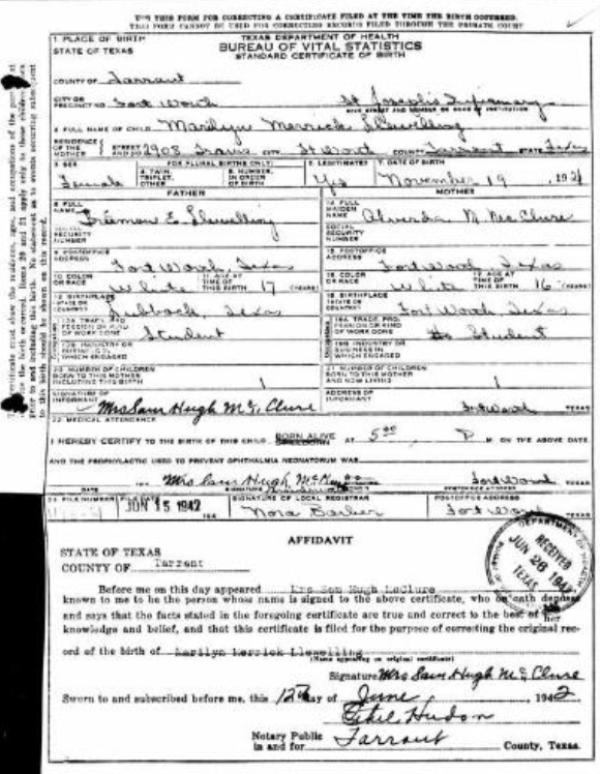 USE THIS FORM FOR CORRECTING A CERTIFICATE FILED AT THE TIME THE BIRTH OCCURRED.
THIS FORM CANNOT BE USED FOR CORRECTING RECORDS FILED THROUGH THE PROBATE COURT
1 PLACE OF BIRTH
STATE OF TEXAS
TEXAS DEPARTMENT OF HEALTH
BUREAU OF VITAL STATISTICS
STANDARD CERTIFICATE OF BIRTH
COUNTY OF Tarrant
CITY OR PRECINCT NO. Fort Worth St Joseph's Infirmary
2 FULL NAME OF CHILD Marilyn Merrick Llewelling
RESIDENCE OF THE MOTHER STREET AND NO. 2908 Travis City Ft Worth COUNTY Tarrant STATE Texas
3 SEX Female
FOR PLURAL BIRTHS ONLY:
4. TWIN, TRIPLET, OTHER
5. NUMBER, IN ORDER OF BIRTH
6. LEGITIMATE? Yes
7. DATE OF BIRTH November 19, 19
FATHER
MOTHER
8 FULL NAME E. Llewelling
14 FULL MAIDEN NAME Alverda M. McClure
SOCIAL SECURITY NUMBER
SOCIAL SECURITY NUMBER
9 POSTOFFICE ADDRESS Fort Worth, Texas
15 POSTOFFICE ADDRESS Fort Worth Texas
10 COLOR OR RACE White 11 AGE AT TIME OF THIS BIRTH 17 (YEARS)
16 COLOR OR RACE White 17 AGE AT TIME OF THIS BIRTH 16 (YEARS)
12 BIRTHPLACE STATE OR COUNTRY Lubbock, Texas
18 BIRTHPLACE STATE OR COUNTRY Fort Worth, Texas
13A TRADE, PROFESSION OR KIND OF WORK DONE Student
19A TRADE, PROFESSION OR KIND OF WORK DONE Student
13B INDUSTRY OR BUSINESS IN WHICH ENGAGED
19B INDUSTRY OR BUSINESS IN WHICH ENGAGED
20 NUMBER OF CHILDREN BORN TO THIS MOTHER INCLUDING THIS BIRTH 1
21 NUMBER OF CHILDREN BORN TO THIS MOTHER AND NOW LIVING 1
SIGNATURE OF INFORMANT Mrs Sam Hugh McClure
ADDRESS OF INFORMANT Ft Worth TEXAS
22 MEDICAL ATTENDANCE
I HEREBY CERTIFY TO THE BIRTH OF THIS CHILD BORN ALIVE AT 5:00 P. M ON THE ABOVE DATE.
AND THE PROPHYLACTIC USED TO PREVENT OPHTHALMIA NEONATORUM WAS
Mrs Sam Hugh McClure Fort Worth
DATE SIGNATURE POSTOFFICE ADDRESS
23 FILE NUMBER FILE DATE JUN 15 1942 SIGNATURE OF LOCAL REGISTRAR Nora Barber POSTOFFICE ADDRESS Fort Worth
AFFIDAVIT
STATE OF TEXAS
COUNTY OF Tarrant
DEPARTMENT OF HEALTH RECEIVED JUN 26 1942 TEXAS
Before me on this day appeared Mrs Sam Hugh McClure
known to me to be the person whose name is signed to the above certificate, who on oath deposes
and says that the facts stated in the foregoing certificate are true and correct to the best of her
knowledge and belief, and that this certificate is filed for the purpose of correcting the original rec-
ord of the birth of Marilyn Merrick Llewelling
(Name appearing on original certificate)
Signature Mrs Sam Hugh McClure
Sworn to and subscribed before me, this 12th day of June, 1942
Ethel Hudon
Notary Public in and for Tarrant County, Texas.